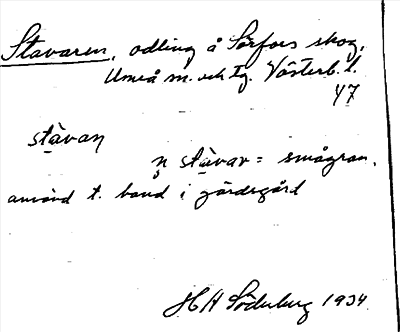 Stavaren, odling å Sörfors skog,
Umeå sn. och tg. Västerb. l.
47
stàvaṇ
ṇ stàvar = smågran,
använd t. band i gärdsgård
H H Söderberg 1934